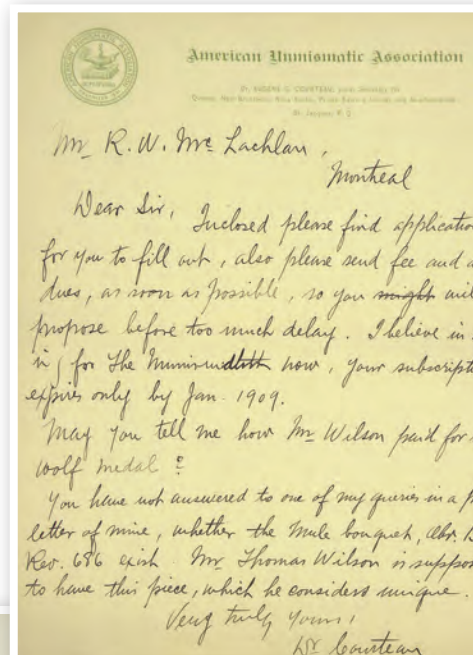 American Numismatic Association
Dr. EUGENE G. COURTEAU,
Quebec, New Brunswick, Nova Scotia, Prince Edward Island, and Newfoundland
St. Jacques, P. Q.
Mr. R. W. Mc Lachlan,
Montreal
Dear Sir, Inclosed please find application
for you to fill out, also please send fee and a
dues, as soon as possible, so you might will
propose before too much delay. I believe in
in, for the now, your subscripti
expires only by Jan. 1909.
May you tell me how Mr Wilson paid for
wolf medal ?
You have not answered to one of my queries in a p
letter of mine, whether the Mule bouquet, Obv.
Rev. 686 exist. Mr. Thomas Wilson is suppos
to have this piece, which he considers unique.
Very truly yours,
Dr Courteau